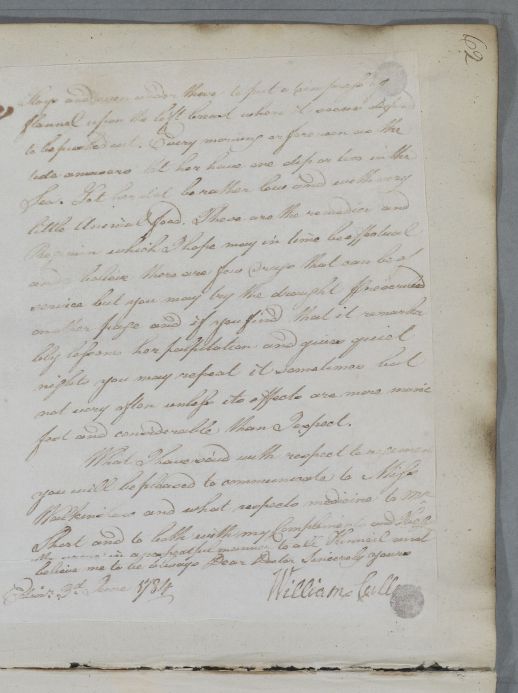 62
Stays and even under these to put a compress of
flannel upon the left breast where it seems disposed
to be pushed out. Every morning or forenoon as the
tide answers let her have one dip or two in the
Sea. Let her diet be rather low and with very
little Animal food. These are the remedies and
Regimen which I hope may in time be effectual
and I believe there are few drugs that can be of
service but you may try the draught prescribed
another page and if you find that it remarka
bly lessens her palpitation and gives quiet
nights you may repeat it sometimes but
not very often unless its effects are more mani
fest and considerable than I expect.
What I have said with respect to regimen
you will be pleased to communicate to Miss
and what respects medicine to Mr
and to both with my Compliments and
in a respectful manner to and
believe me to be always Dear Doctor Sincerely yours
3d June 1784 William Cull